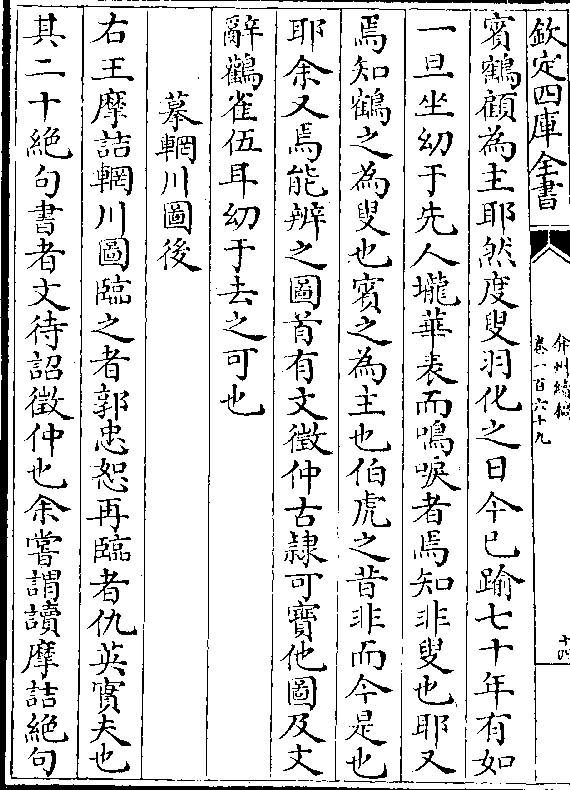 欽定四庫全書
弇州續稿
卷一百六十九
十四
賓鶴顧為主耶然度叟羽化之日今已踰七十年有如
一旦坐幼于先人壠華表而鳴唳者焉知非叟也耶又
焉知鶴之為叟也賓之為主也伯虎之昔非而今是也
耶余又焉能辨之圖首有文徵仲古隸可寶他圖及文
辭鸛雀伍耳幼于去之可也
摹輞川圖後
右王摩詰輞川圖臨之者郭忠恕再臨者仇英實夫也
其二十絶句書者文待詔徵仲也余嘗謂讀摩詰絶句